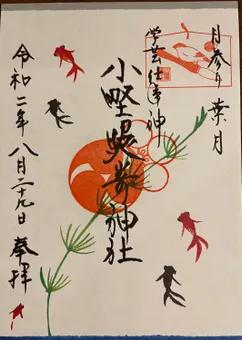 月参り 葉月
学芸仕達神
小野照崎神社
令和二年 八月二十九日 奉拝